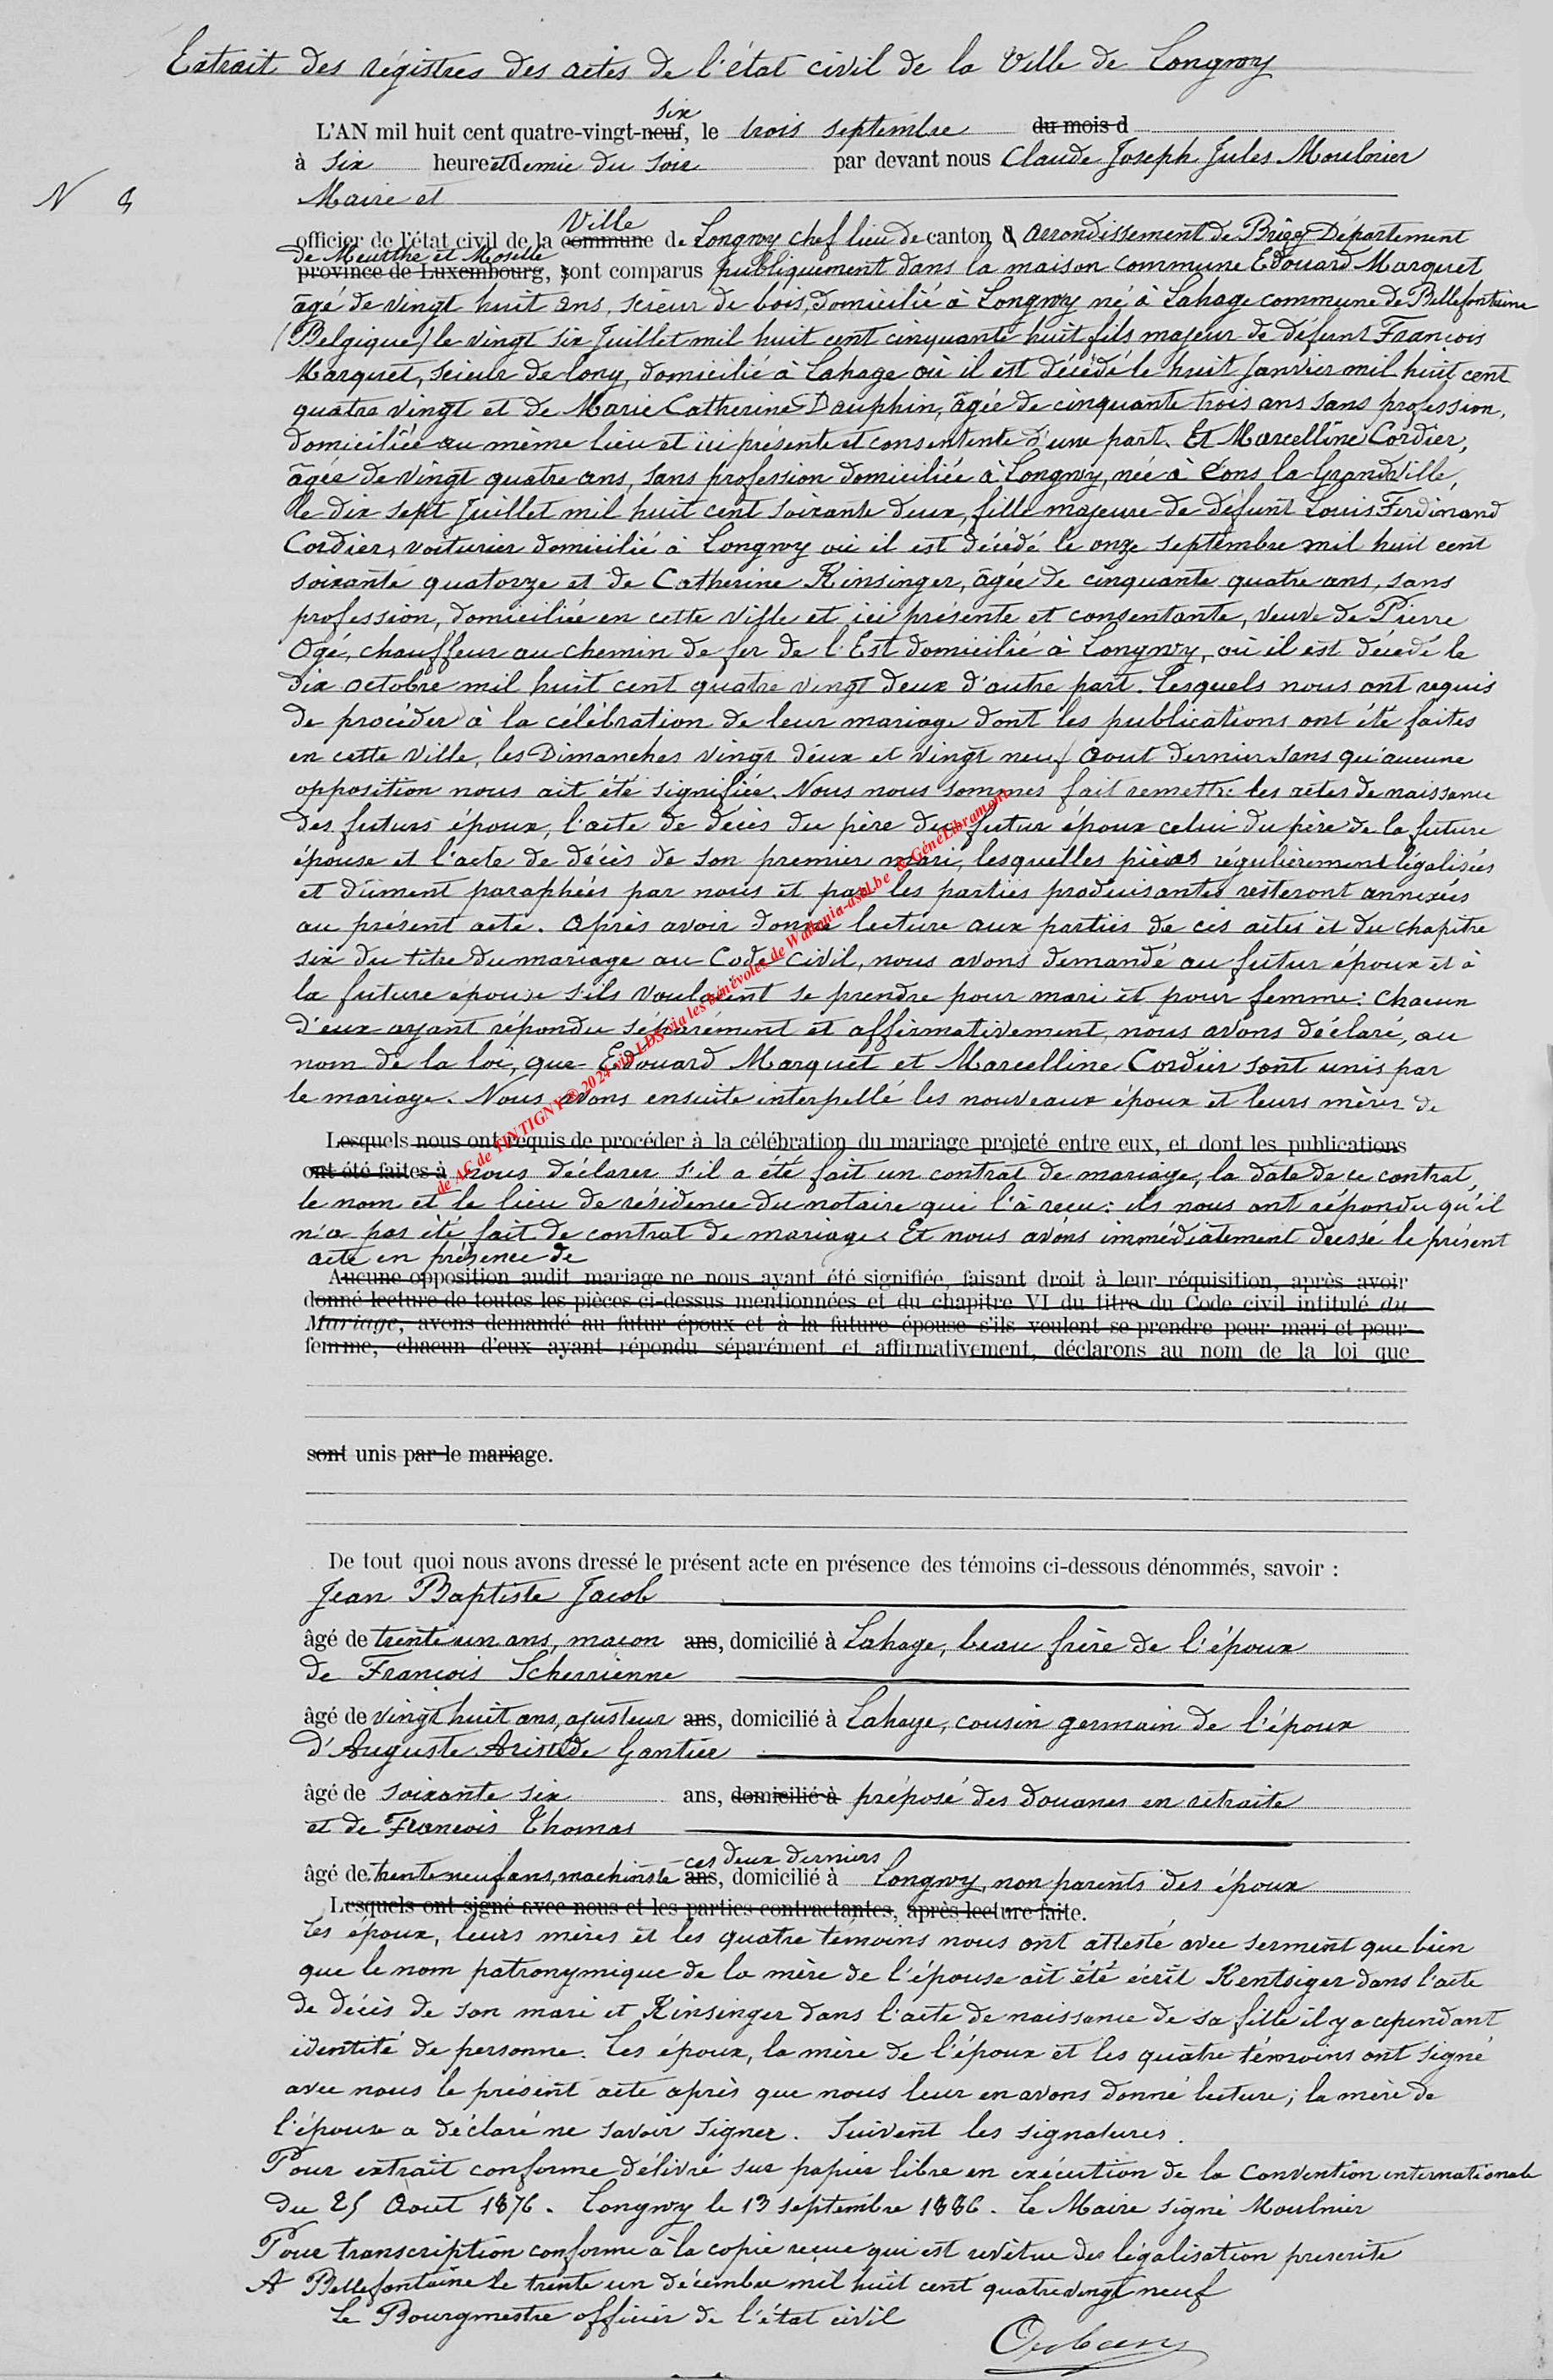 Extrait des régistres des actes de l'état civil de la Ville de Longwy
six
L'AN mil huit cent quatre-vingt-neuf, le trois septembre du mois d
à six heure et demie du soir par devant nous Claude Joseph Jules Moulnier
N
Maire et
Ville
officier de l'état civil de la commune de Longwy chef lieu de canton d arrondissement de Briey Département
de Meurthe et Moselle
province de Luxembourg, sont comparus publiquement dans la maison commune Edouard Marquet
âgé de vingt huit ans, scieur de bois, domicilié à Longwy né à Lahage commune de Bellefontaine
(Belgique) le vingt six Juillet mil huit cent cinquante huit fils majeur de défunt François
Marquet, scieur de long, domicilié à Lahage où il est décédé le huit Janvier mil huit cent
quatre vingt et de Marie Catherine Dauphin, âgée de cinquante trois ans sans profession,
domiciliée au même lieu et ici présente et consentente d'une part. Et Marcelline Cordier,
âgée de vingt quatre ans, sans profession domiciliée à Longwy, née à Cons la Grandville,
le dix sept Juillet mil huit cent soixante deux, fille majeure de défunt Louis Ferdinand
Cordier, voiturier domicilié à Longwy où il est décédé le onze septembre mil huit cent
soixante quatorze et de Catherine Kinsinger, âgée de cinquante quatre ans, sans
profession, domiciliée en cette ville et ici présente et consentante, veuve de Pierre
Ogé, chauffeur au chemin de fer de l'Est domicilié à Longwy, où il est décédé le
dix octobre mil huit cent quatre vingt deux d'autre part. Lesquels nous ont requis
de procéder à la célébration de leur mariage dont les publications ont été faites
en cette ville, les Dimanches vingt deux et vingt neuf Aout dernier sans qu'aucune
opposition nous ait été signifiée. Nous nous sommes fait remettre les actes de naissance
des futurs époux, l'acte de décès du père du futur époux celui du père de la future
épouse et l'acte de décès de son premier mari, lesquelles pièces régulièrement légalisées
et dûment paraphées par nous et par les parties produisantes resteront annexées
au présent acte. Après avoir donné lecture aux parties de ces actes et du chapitre
six du titre du mariage au Code civil, nous avons demandé au futur époux et à
la future épouse s'ils voulaient se prendre pour mari et pour femme: chacun
d'eux ayant répondu séparément et affirmativement, nous avons déclaré, au
nom de la loi, que Edouard Marquet et Marcelline Cordier sont unis par
le mariage. Nous avons ensuite interpellé les nouveaux époux et leurs mères de
de AC de TINTIGNY © 2024 via LDS via les bénévoles de Wallonia-asbl.be & GénéLibramont
Lesquels nous ont requis de procéder à la célébration du mariage projeté entre eux, et dont les publications
ont été faites à nous déclarer s'il a été fait un contrat de mariage, la date de ce contrat,
le nom et le lieu de résidence du notaire qui l'a reçu: ils nous ont répondu qu'il
n'a pas été fait de contrat de mariage. Et nous avons immédiatement dressé le présent
acte en présence de
Aucune opposition audit mariage ne nous ayant été signifiée, faisant droit à leur réquisition, après avoir
donné lecture de toutes les pièces ci-dessus mentionnées et du chapitre VI du titre du Code civil intitulé du
Mariage, avons demandé au futur époux et à la future épouse s'ils veulent se prendre pour mari et pour
femme, chacun d'eux ayant répondu séparément et affirmativement, déclarons au nom de la loi que
sont unis par le mariage.
De tout quoi nous avons dressé le présent acte en présence des témoins ci-dessous dénommés, savoir :
Jean Baptiste Jacob
âgé de trente un ans, maçon ans, domicilié à Lahage, beau frère de l'époux
de François Scherrienne
âgé de vingt huit ans, ajusteur ans, domicilié à Lahage, cousin germain de l'époux
d'Auguste Aristide Gantier
âgé de soixante six ans, domicilié à préposé des douanes en retraite
et de François Thomas
ces deux derniers
âgé de trente neuf ans, machiniste ans, domicilié à Longwy, non parents des époux
Lesquels ont signé avec nous et les parties contractantes, après lecture faite.
Les époux, leurs mères et les quatre témoins nous ont attesté avec serment que bien
que le nom patronymique de la mère de l'épouse ait été écrit Kentsiger dans l'acte
de décès de son mari et Kinsenger dans l'acte de naissance de sa fille il y a cependant
identité de personne. Les époux, la mère de l'époux et les quatre témoins ont signé
avec nous le présent acte après que nous leur en avons donné lecture; la mère de
l'épouse a déclaré ne savoir signer. Suivent les signatures.
Pour extrait conforme délivré sur papier libre en exécution de la Convention internationale
du 25 Aout 1876. Longwy le 13 septembre 1886. Le Maire signé Moulnier
Pour transcription conforme à la copie reçue qui est revêtue des légalisation prescrite
A Bellefontaine le trente un décembre mil huit cent quatre vingt neuf
Le Bourgmestre officier de l'état civil